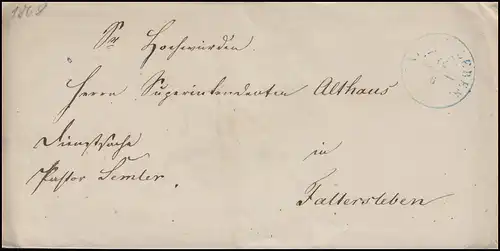 1868
Sr Hochwürden
Herrn Superintendenten Althaus
Dienstsache
Pastor Semler.
in
Fallersleben
LEBEN